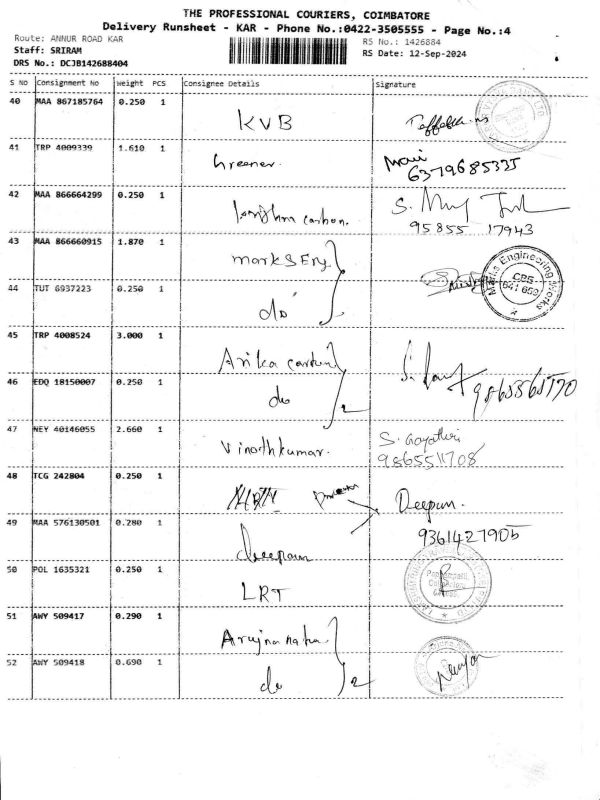 THE PROFESSIONAL COURIERS, COIMBATORE
Delivery Runsheet - KAR - Phone No.:0422-3505555 - Page No.:4
Route: ANNUR ROAD KAR
RS No.: 1426884
Staff: SRIRAM
RS Date: 12-Sep-2024
DRS No.: DCJB142688404
S No Consignment No Weight PCS Consignee Details Signature
40 MAA 867185764 0.250 1 KVB
41 TRP 4009339 1.610 1 Greener.
6379685335
42 MAA 866664299 0.250 1 carbon. S.
95855 17943
43 MAA 866660915 1.870 1 Marks Eng
Marks Engineering Works
CBE
641 659
44 TUT 6937223 0.250 1 do
45 TRP 4008524 3.000 1 Arika
46 EDQ 18150007 0.250 1 do 2
47 NEY 40146055 2.660 1 Vinothkumar. S. Gayathri
9865511708
48 TCG 242804 0.250 1 Deepam.
49 MAA 576130501 0.280 1 deepam
9361427905
50 POL 1635321 0.250 1 LRT
51 AWY 509417 0.290 1
52 AWY 509418 0.690 1 do 2